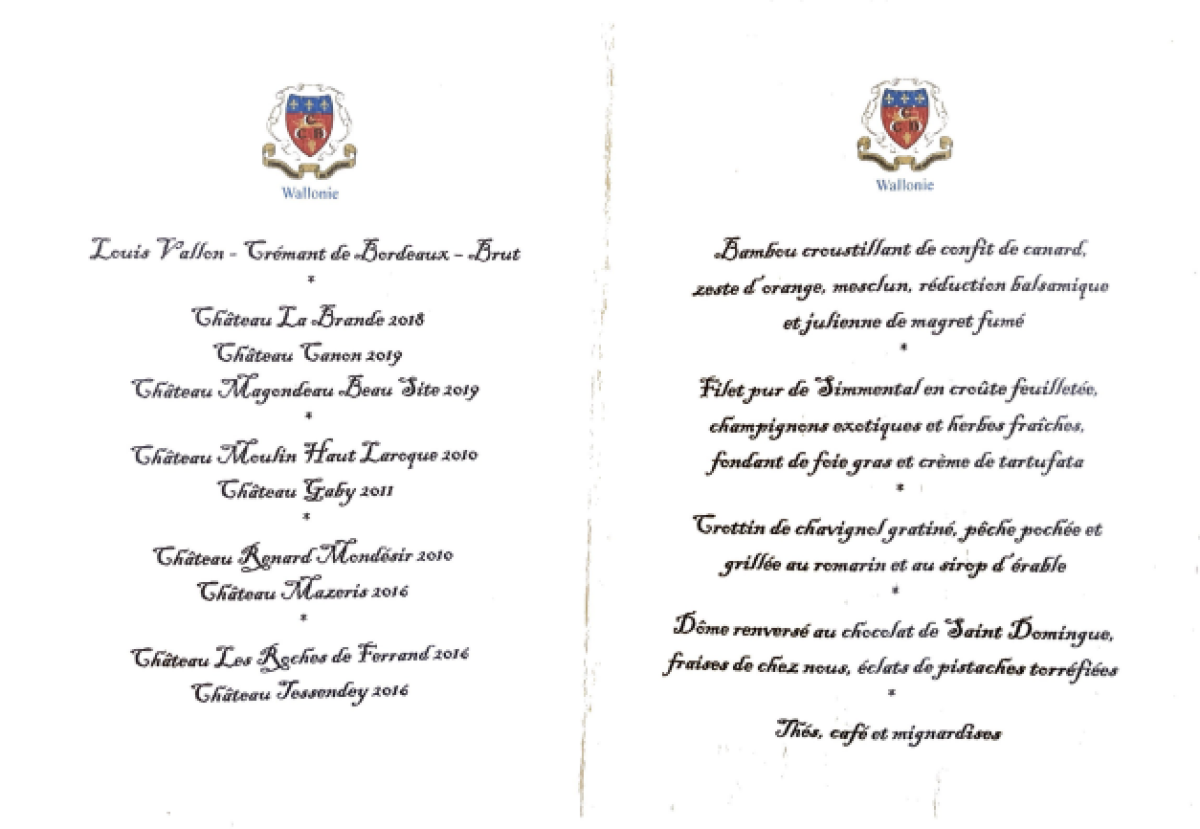 C
C B
Wallonie
Louis Vallon - Crémant de Bordeaux - Brut
*
Château La Brande 2018
Château Canon 2019
Château Magondeau Beau Site 2019
*
Château Moulin Haut Laroque 2010
Château Gaby 2011
*
Château Renard Mondésir 2010
Château Mazeris 2016
*
Château Les Roches de Ferrand 2016
Château Tessendey 2016
C
C B
Wallonie
Bambou croustillant de confit de canard,
zeste d'orange, mesclun, réduction balsamique
et julienne de magret fumé
*
Filet pur de Simmental en croûte feuilletée,
champignons exotiques et herbes fraîches,
fondant de foie gras et crème de tartufata
*
Crottin de chavignol gratiné, pêche pochée et
grillée au romarin et au sirop d'érable
*
Dôme renversé au chocolat de Saint Domingue,
fraises de chez nous, éclats de pistaches torréfiées
*
Thés, café et mignardises